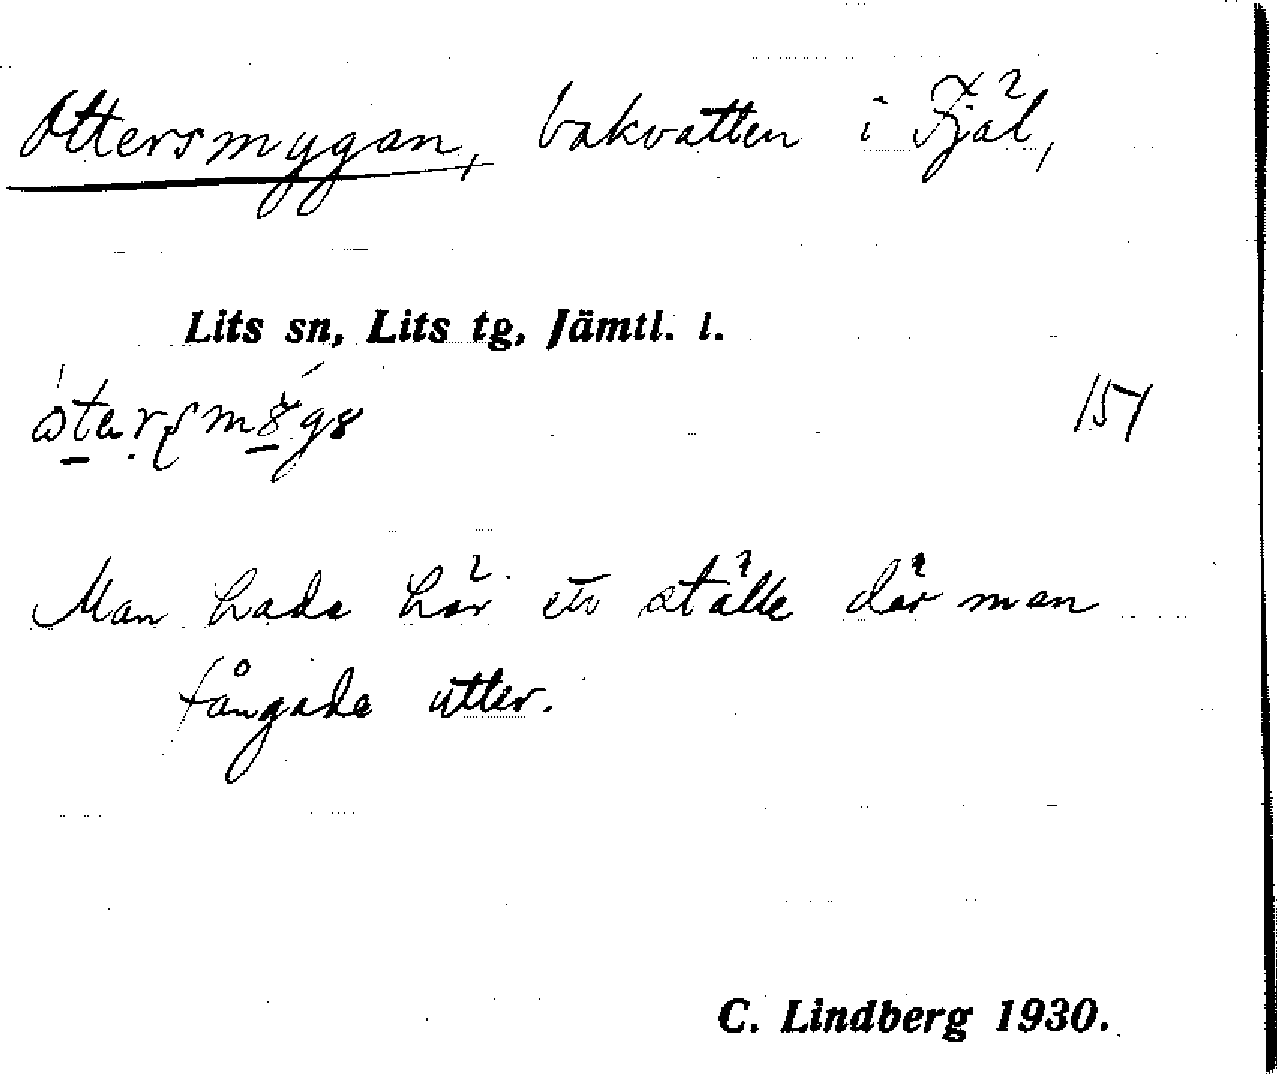 Ottersmygan, bakvatten i Fjäl,
Lits sn, Lits tg, Jämtl. l.
157
Man hade här ett ställe där man
fångade utter.
C. Lindberg 1930.